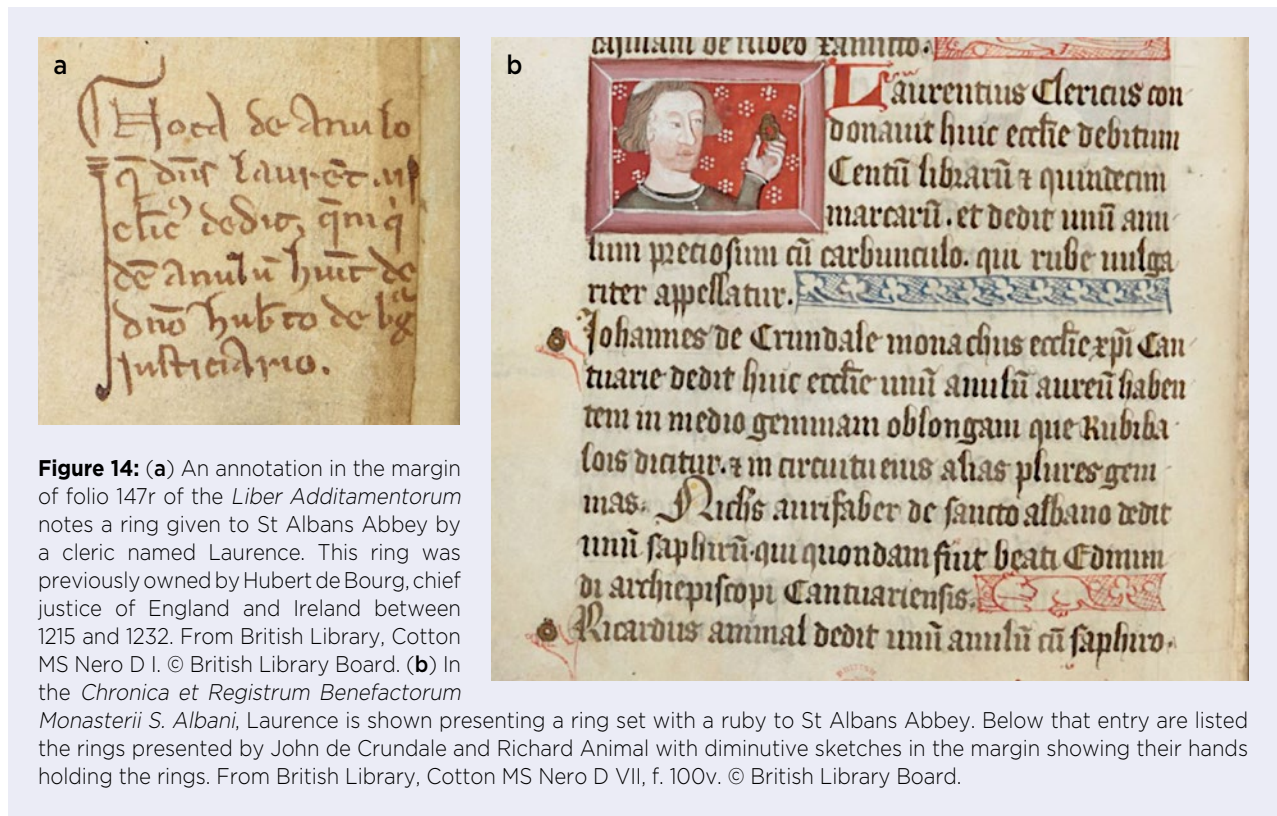 a
Hoc de Anulo
q̄ dn̄s Laurēt.
cl̄ic᷒ dedit,
dē Anulū huīt de
dn̄o hub̄to de
Justiciario.
b
de rubeo
Laurentius Clericus con
donauit huic eccl̄ie debitum
Centū librarū ⁊ quindecim
marcarū. et dedit unū anu
lum preciosum cū carbunculo. qui rube uulga
riter appellatur.
Johannes de Crundale monachus eccl̄ie xp̄i Can
tuarie dedit huic eccl̄ie unū anulū aureū haben
tem in medio gemmam oblongam que Rubiba
lois dicitur. ⁊ in circuitu eius alias plures gem
mas. Nich̄s aurifaber de sancto albano dedit
unū saphirū. qui quondam fuit beati Edmun
di archiepiscopi Cantuariensis.
Ricardus animal dedit unū anulū cū saphiro.
Figure 14: (a) An annotation in the margin
of folio 147r of the Liber Additamentorum
notes a ring given to St Albans Abbey by
a cleric named Laurence. This ring was
previously owned by Hubert de Bourg, chief
justice of England and Ireland between
1215 and 1232. From British Library, Cotton
MS Nero D I. © British Library Board. (b) In
the Chronica et Registrum Benefactorum
Monasterii S. Albani, Laurence is shown presenting a ring set with a ruby to St Albans Abbey. Below that entry are listed
the rings presented by John de Crundale and Richard Animal with diminutive sketches in the margin showing their hands
holding the rings. From British Library, Cotton MS Nero D VII, f. 100v. © British Library Board.